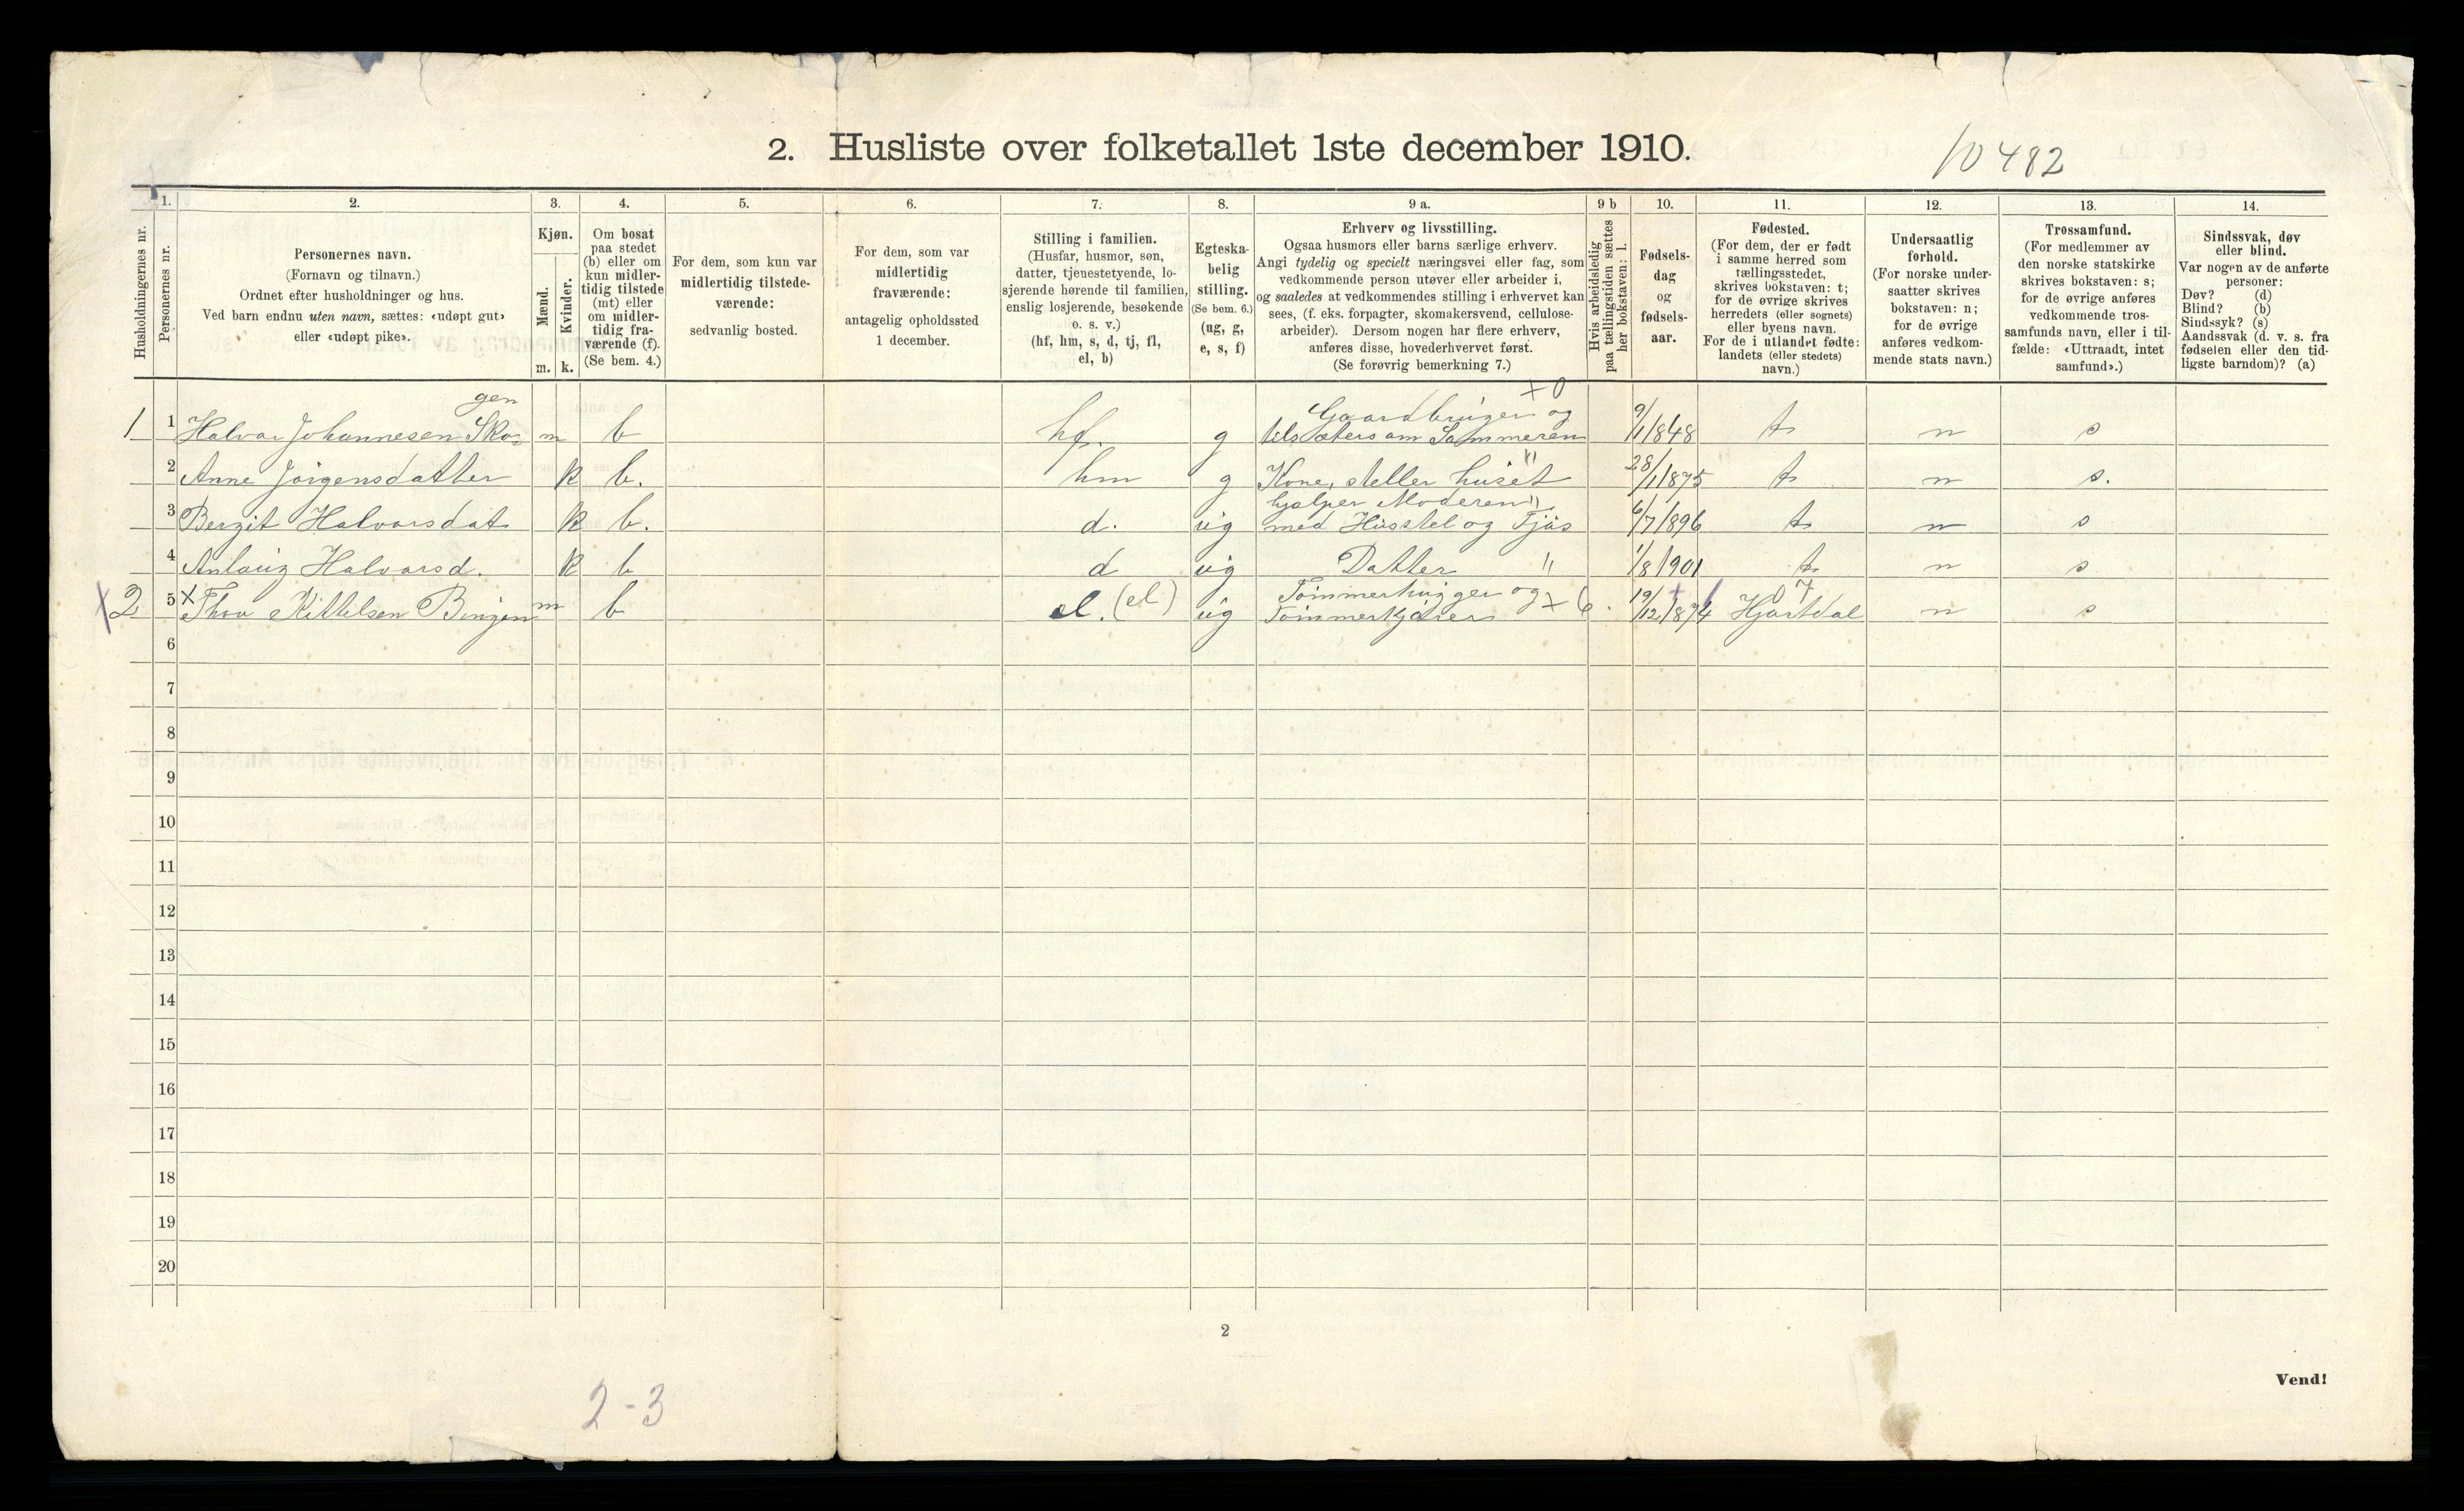 2. Husliste over folketallet 1ste december 1910.
10 482
Husholdningernes nr.
1.
Personernes nr.
2.
Personernes navn.
(Fornavn og tilnavn.)
Ordnet efter husholdninger og hus.
Ved barn endnu uten navn, sættes: «udøpt gut»
eller «udøpt pike».
3.
Kjøn.
Mænd.
Kvinder.
m. k.
4.
Om bosat
paa stedet
(b) eller om
kun midler-
tidig tilstede
(mt) eller
om midler-
tidig fra-
værende (f).
(Se bem. 4.)
5.
For dem, som kun var
midlertidig tilstede-
værende:
sedvanlig bosted.
6.
For dem, som var
midlertidig
fraværende:
antagelig opholdssted
1 december.
7.
Stilling i familien.
(Husfar, husmor, søn,
datter, tjenestetyende, lo-
sjerende hørende til familien,
enslig losjerende, besøkende
o. s. v.)
(hf, hm, s, d, tj, fl,
el, b)
8.
Egteska-
belig
stilling.
(Se bem. 6.)
(ug, g,
e, s, f)
9 a.
Erhverv og livsstilling.
Ogsaa husmors eller barns særlige erhverv.
Angi tydelig og specielt næringsvei eller fag, som
vedkommende person utøver eller arbeider i,
og saaledes at vedkommendes stilling i erhvervet kan
sees, (f. eks. forpagter, skomakersvend, cellulose-
arbeider). Dersom nogen har flere erhverv,
anføres disse, hovederhvervet først.
(Se forøvrig bemerkning 7.)
9 b
Hvis arbeidsledig
paa tællingstiden sættes
her bokstaven: l.
10.
Fødsels-
dag
og
fødsels-
aar.
11.
Fødested.
(For dem, der er født
i samme herred som
tællingsstedet,
skrives bokstaven: t;
for de øvrige skrives
herredets (eller sognets)
eller byens navn.
For de i utlandet fødte:
landets (eller stedets)
navn.)
12.
Undersaatlig
forhold.
(For norske under-
saatter skrives
bokstaven: n;
for de øvrige
anføres vedkom-
mende stats navn.)
13.
Trossamfund.
(For medlemmer av
den norske statskirke
skrives bokstaven: s;
for de øvrige anføres
vedkommende tros-
samfunds navn, eller i til-
fælde: «Uttraadt, intet
samfund».)
14.
Sindssvak, døv
eller blind.
Var nogen av de anførte
personer:
Døv? (d)
Blind? (b)
Sindssyk? (s)
Aandssvak (d. v. s. fra
fødselen eller den tid-
ligste barndom)? (a)
gen Gaardbruger og x 0
1 1 Halvor Johannesen Sko- m b hf. g tilsæters om Sommeren 9/1 1848 t n s
2 Anne Jörgensdatter k b. hm g Kone, steller huset " 28/1 1875 t n s.
hjælper Moderen "
3 Bergit Halvorsdat k b. d. ug med Husstel og Fjös 6/7 1896 t n s
4 Anlaug Halvorsd. k b d ug Datter " 1/8 1901 t n s
Tömmerhugger og x 6. 07
x2 5 x Thov Kittelsen Bingen m b el. (el) ug Tömmerkjörer 19/12 1874 Hjartdal n s
6
7
8
9
10
11
12
13
14
15
16
17
18
19
20
2
Vend!
2-3